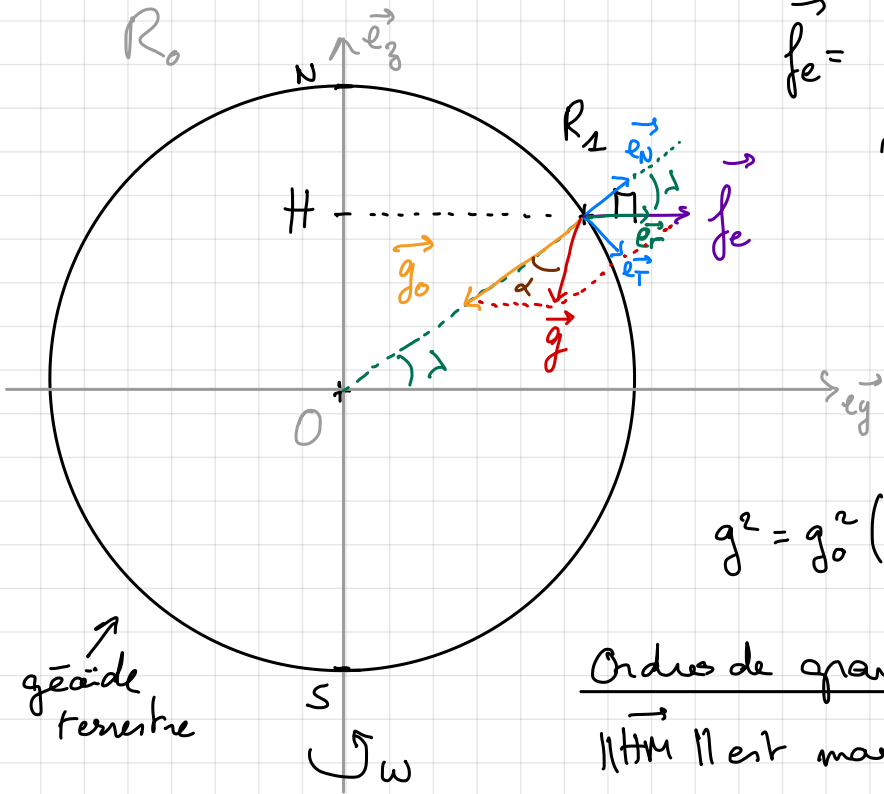 R₀
e⃗z
N
f⃗e =
R₁
e⃗N
λ
H
f⃗e
e⃗r
g⃗₀
e⃗T
α
g⃗
λ
O
e⃗y
g² = g₀² (
géoïde
terrestre
S
ω
Ordres de gran
||H⃗M⃗|| est ma